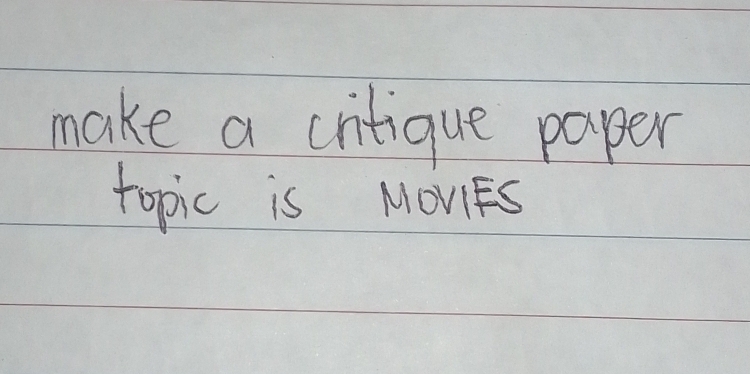 make a critique paper
topic is MOVIES